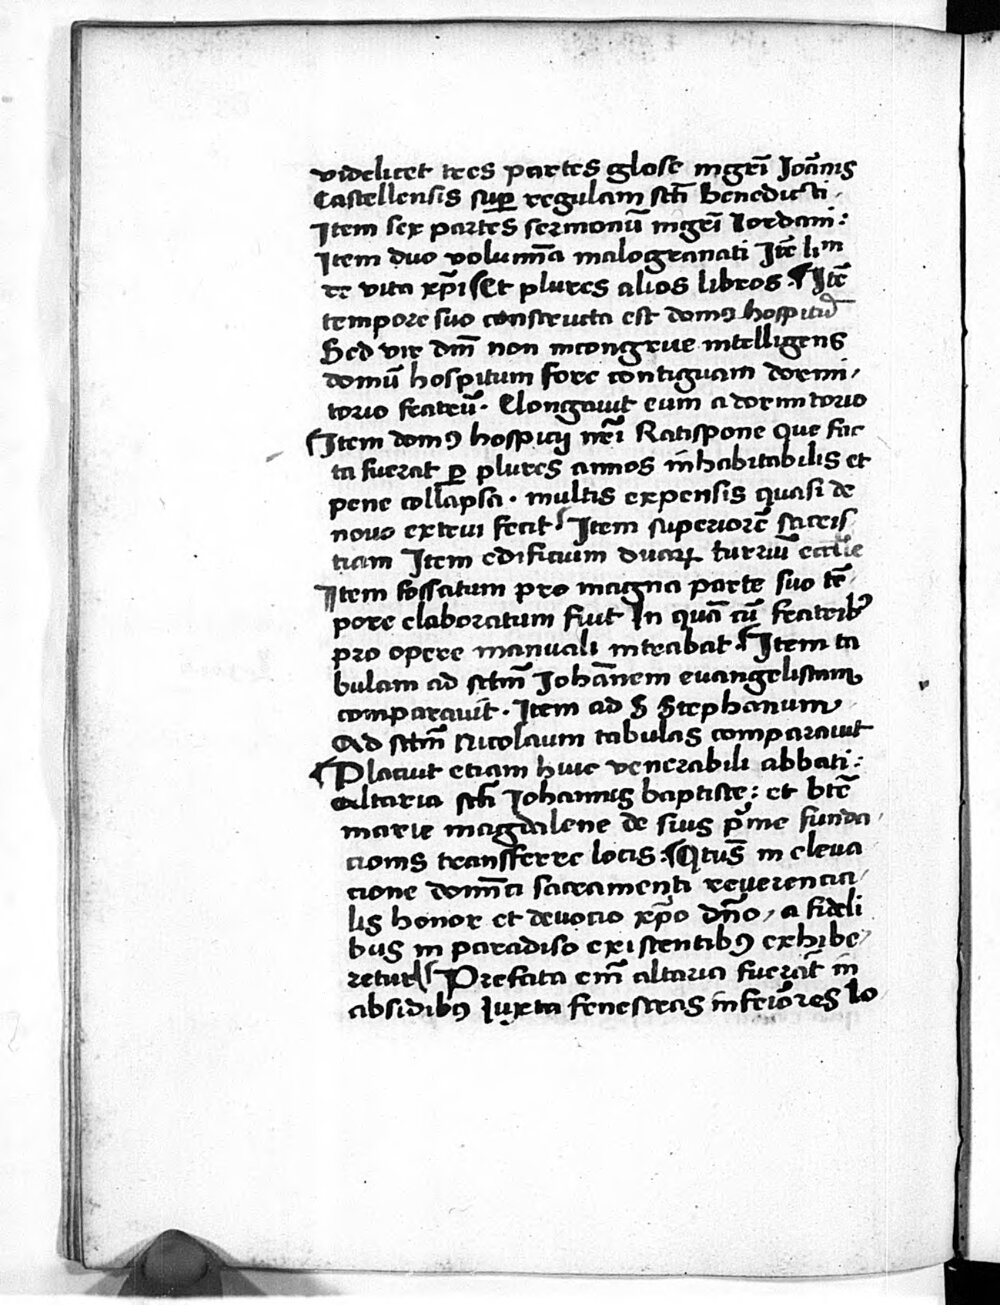 videlicet tres partes glose mgrī Joānis
Castellensis sup regulam scti Benedicti.
Item sex partes sermonū mgrī Jordani:
Item duo volumīa malogranati Itē lim
de vita xp̄i Et plures alios libros. Itē
tempore suo constructa est domꝰ hospitū
Sed vir dn̄i non incongrue intelligens
domū hospitum fore contiguam dormi/
torio fratrū. Elongavit eum a dormitorio
Item domꝰ hospitij nr̄i Ratispone que fac
ta fuerat ꝑ plures annos inhabitabilis et
pene collapsa. multis expensis quasi de
novo extrui fecit Item superiorē sacris/
tiam Item edificium duaꝝ turriū eccl̄ie
Item fossatum pro magna parte suo tē/
pore elaboratum fuit In quā cū fratribꝰ
pro opere manuali intrabat. Item ta
bulam ad sctm̄ Johānem evangelistam
comparavit. Item ad S Stephanum
Ad sctm̄ Nicolaum tabulas comparavit
Placuit etiam huic venerabili abbati:
Altaria scti Johannis baptiste: et btē
marie magdalene de suis pīme funda/
cionis transferre locis: Qtūs in eleva
cione domīci sacramenti reverencia/
lis honor et devocio xp̄o dn̄o/ a fideli
bus in paradiso existentibꝰ exhibe/
retur Prefata em̄ altaria fuerāt in
absidibꝰ Juxta fenestras inferiōres lo